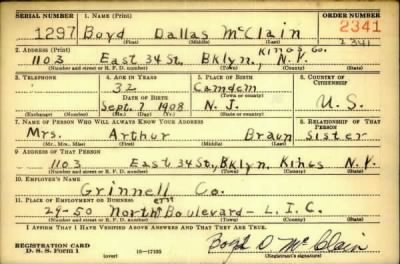 SERIAL NUMBER 1. NAME (Print) ORDER NUMBER
1297 Boyd Dallas McClain 2341
(First) (Middle) (Last) 2341
2. ADDRESS (Print) Kings Co.
1103 East 34 St, Bklyn, N.Y.
(Number and street or R. F. D. number) (Town) (County) (State)
3. TELEPHONE 4. AGE IN YEARS 5. PLACE OF BIRTH 6. COUNTRY OF CITIZENSHIP
32 Camdem
DATE OF BIRTH (Town or county)
Sept. 7 1908 N. J. U. S.
(Exchange) (Number) (Mo.) (Day) (Yr.) (State or country)
7. NAME OF PERSON WHO WILL ALWAYS KNOW YOUR ADDRESS 8. RELATIONSHIP OF THAT PERSON
Mrs. Arthur Braun Sister
(Mr., Mrs., Miss) (First) (Middle) (Last)
9. ADDRESS OF THAT PERSON
1103 East 34 St, Bklyn, Kings N.Y.
(Number and street or R. F. D. number) (Town) (County) (State)
10. EMPLOYER'S NAME
Grinnell Co.
11. PLACE OF EMPLOYMENT OR BUSINESS ern
29-50 North Boulevard - L.I.C.
(Number and street or R. F. D. number) (Town) (County) (State)
I AFFIRM THAT I HAVE VERIFIED ABOVE ANSWERS AND THAT THEY ARE TRUE.
REGISTRATION CARD
D. S. S. Form 1 (over) 16-17105 Boyd D. McClain
(Registrant's signature)